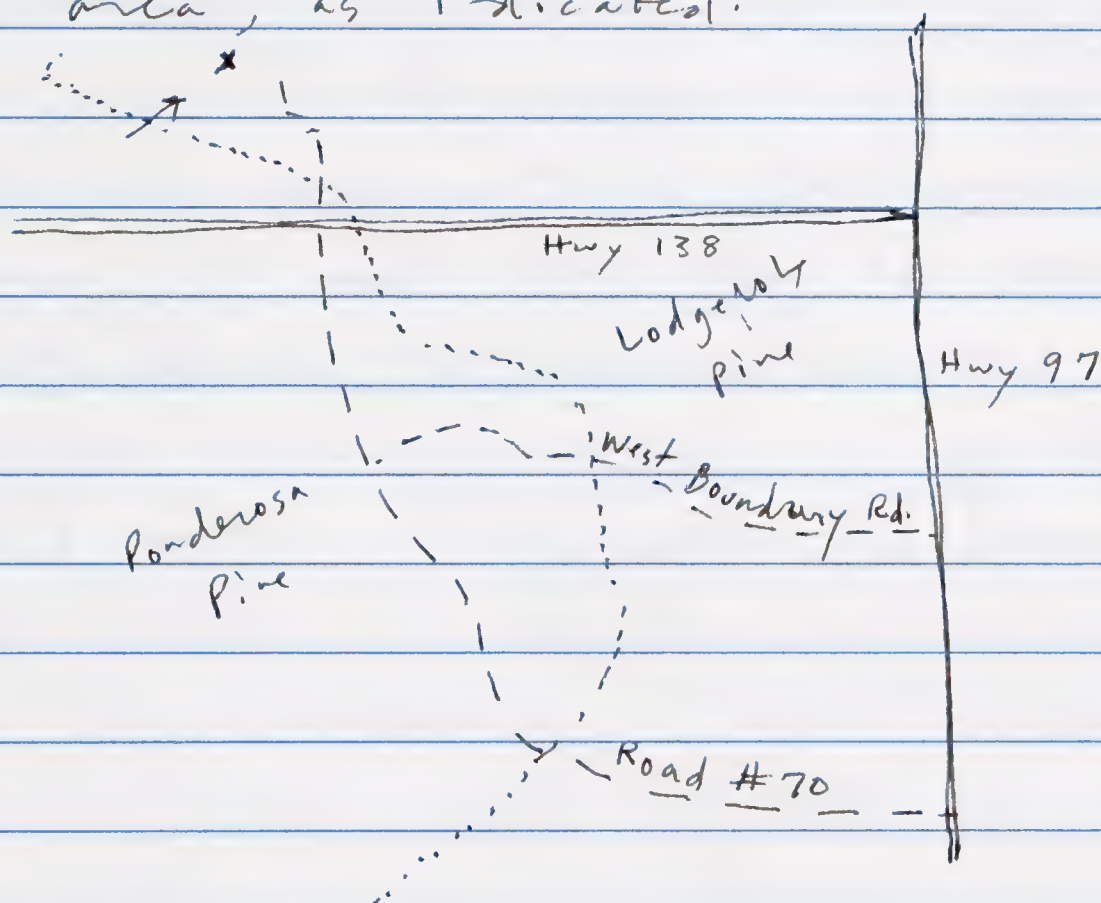 area, as indicated.
x
Hwy 138
Lodgepole
pine
Hwy 97
West
Boundary Rd.
Ponderosa
Pine
Road #70